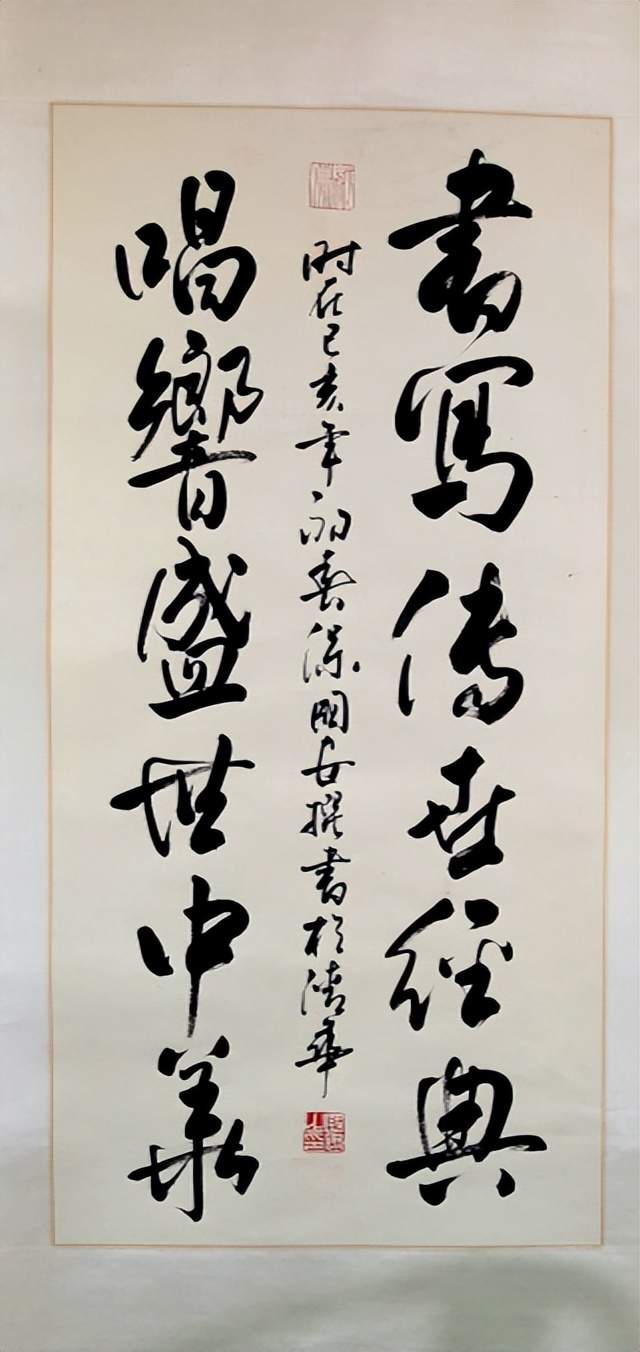 書寫傳世經典
時在己亥年初春國安撰書於清華
唱響盛世中華